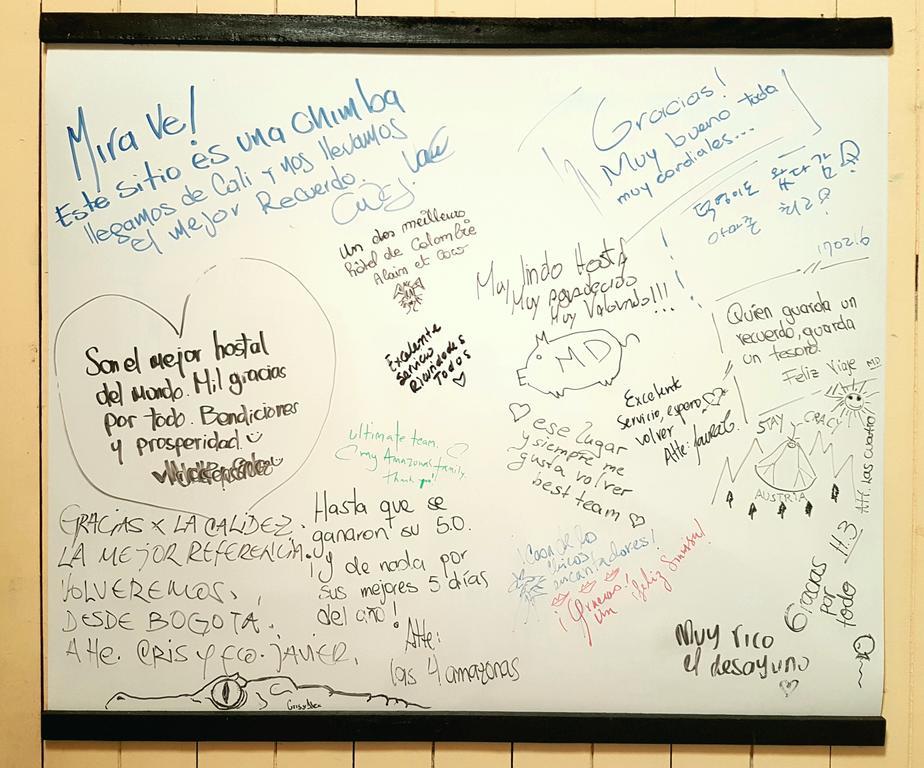 Mira Ve!
Este sitio es una chimba
llegamos de Cali y nos llevamos
el Mejor Recuerdo.
Gracias!
Muy bueno todo
muy cordiales...
아마존 최고!
170216
Un des meilleurs
hôtel de Colombie
Alain et Coco
Muy lindo Hostal
Muy agradecido
Muy Valorado!!!
MD
Excelente
Servicio
Ricundodes
Todos
Quien guarda un
recuerdo, guarda
un tesoro.
Feliz Viaje MD
Son el mejor hostal
del mundo. Mil gracias
por todo. Bendiciones
y prosperidad.
Excelente
Servicio, espero
volver
Atte: Laura G.
ese lugar
y siempre me
gusta volver
best team
STAY CRAZY
AUSTRIA
ultimate team.
my Amazonas family.
Thank you!
GRACIAS X LA CALIDEZ.
LA MEJOR REFERENCIA.
VOLVEREMOS.
DESDE BOGOTA.
Atte. CRIS Y FCO. JAVIER.
Hasta que se
ganaron su 5.0.
¡y de nada por
sus mejores 5 días
del año!
Atte:
las 4 amazonas
¡Gracias!
un ¡feliz
Gracias
por
todo
Att. las cuatro
H.3
Muy rico
el desayuno